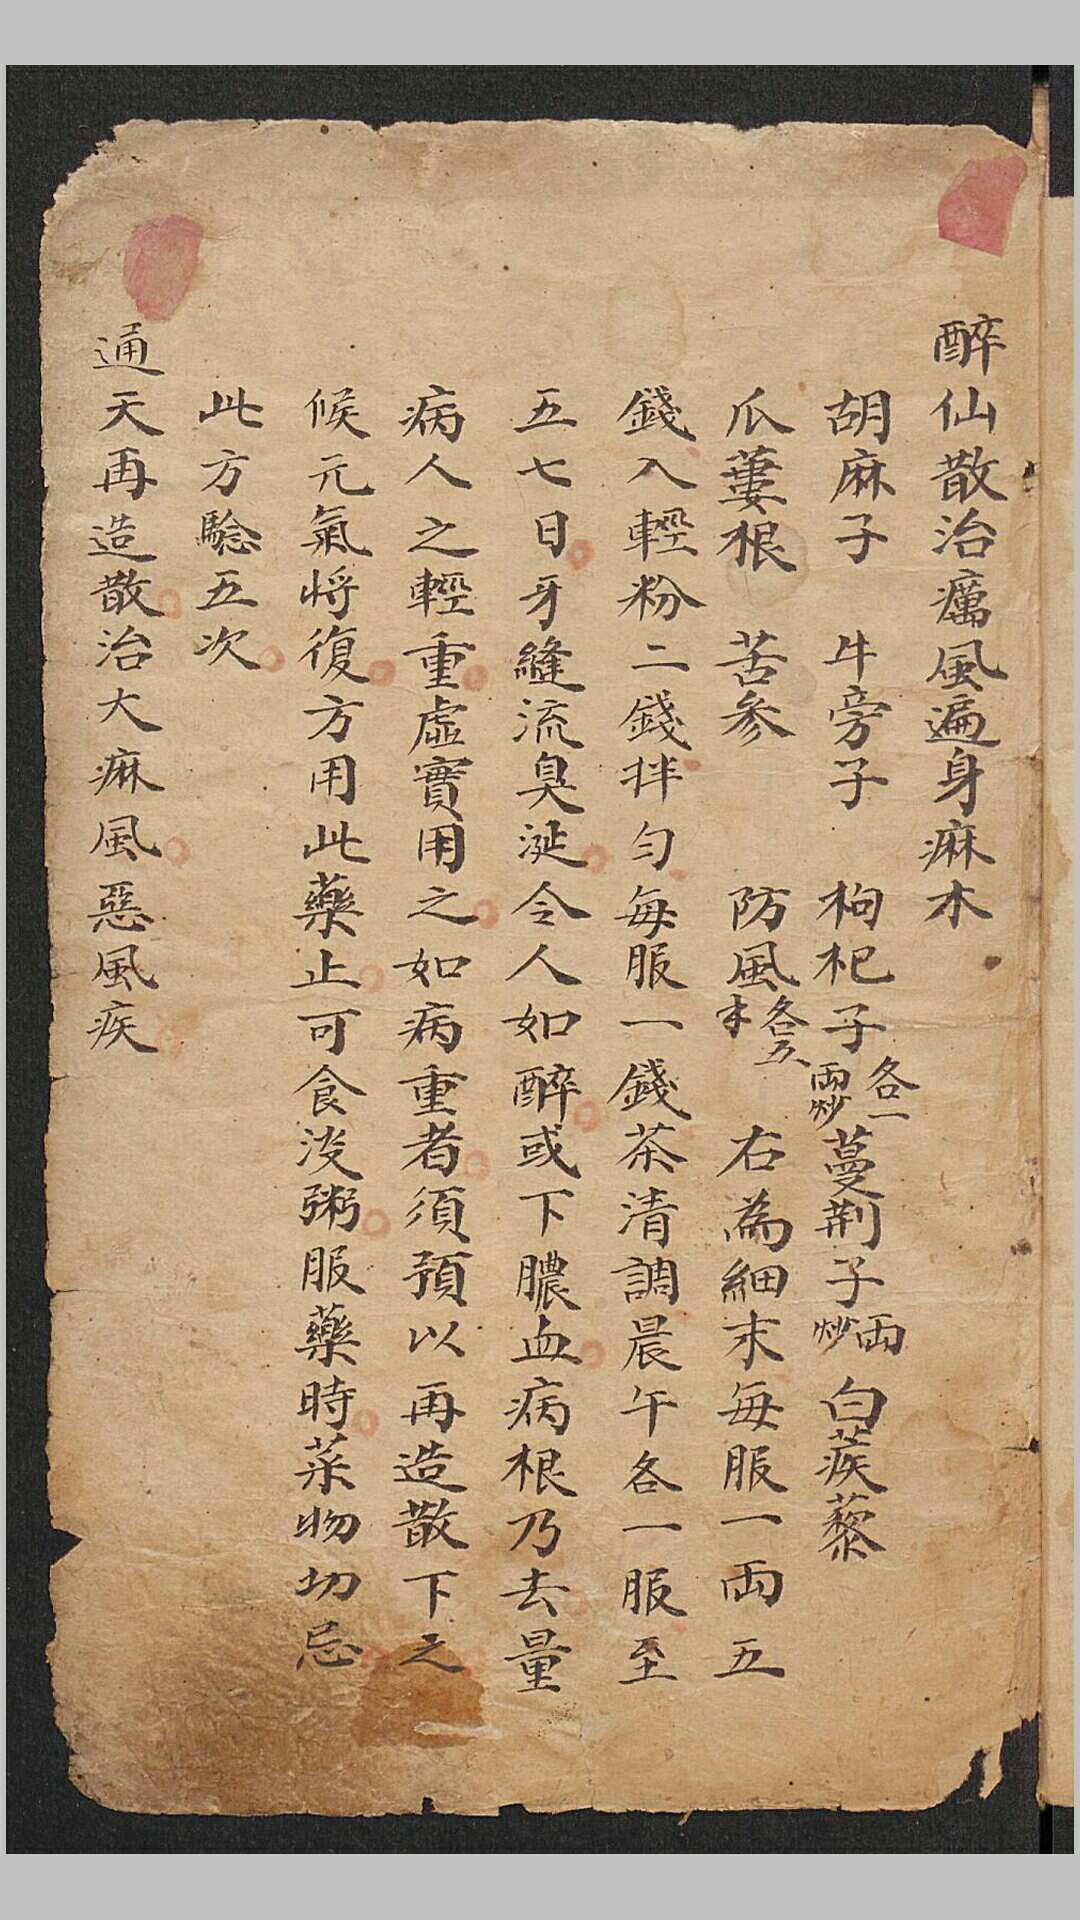 醉仙散治癘風遍身痲木
胡麻子 牛旁子 枸杞子各一兩炒蔓荆子兩炒白蒺藜
瓜蔞根 苦参 防風各五 右為細末每服一兩五
錢入輕粉二錢拌勻每服一錢茶清調晨午各一服至
五七日牙縫流臭涎令人如醉或下膿血病根乃去量
病人之輕重虛實用之如病重者須預以再造散下之
候元氣將復方用此藥止可食淡粥服藥時菜物切忌
此方驗五次
通天再造散治大痲風惡風疾